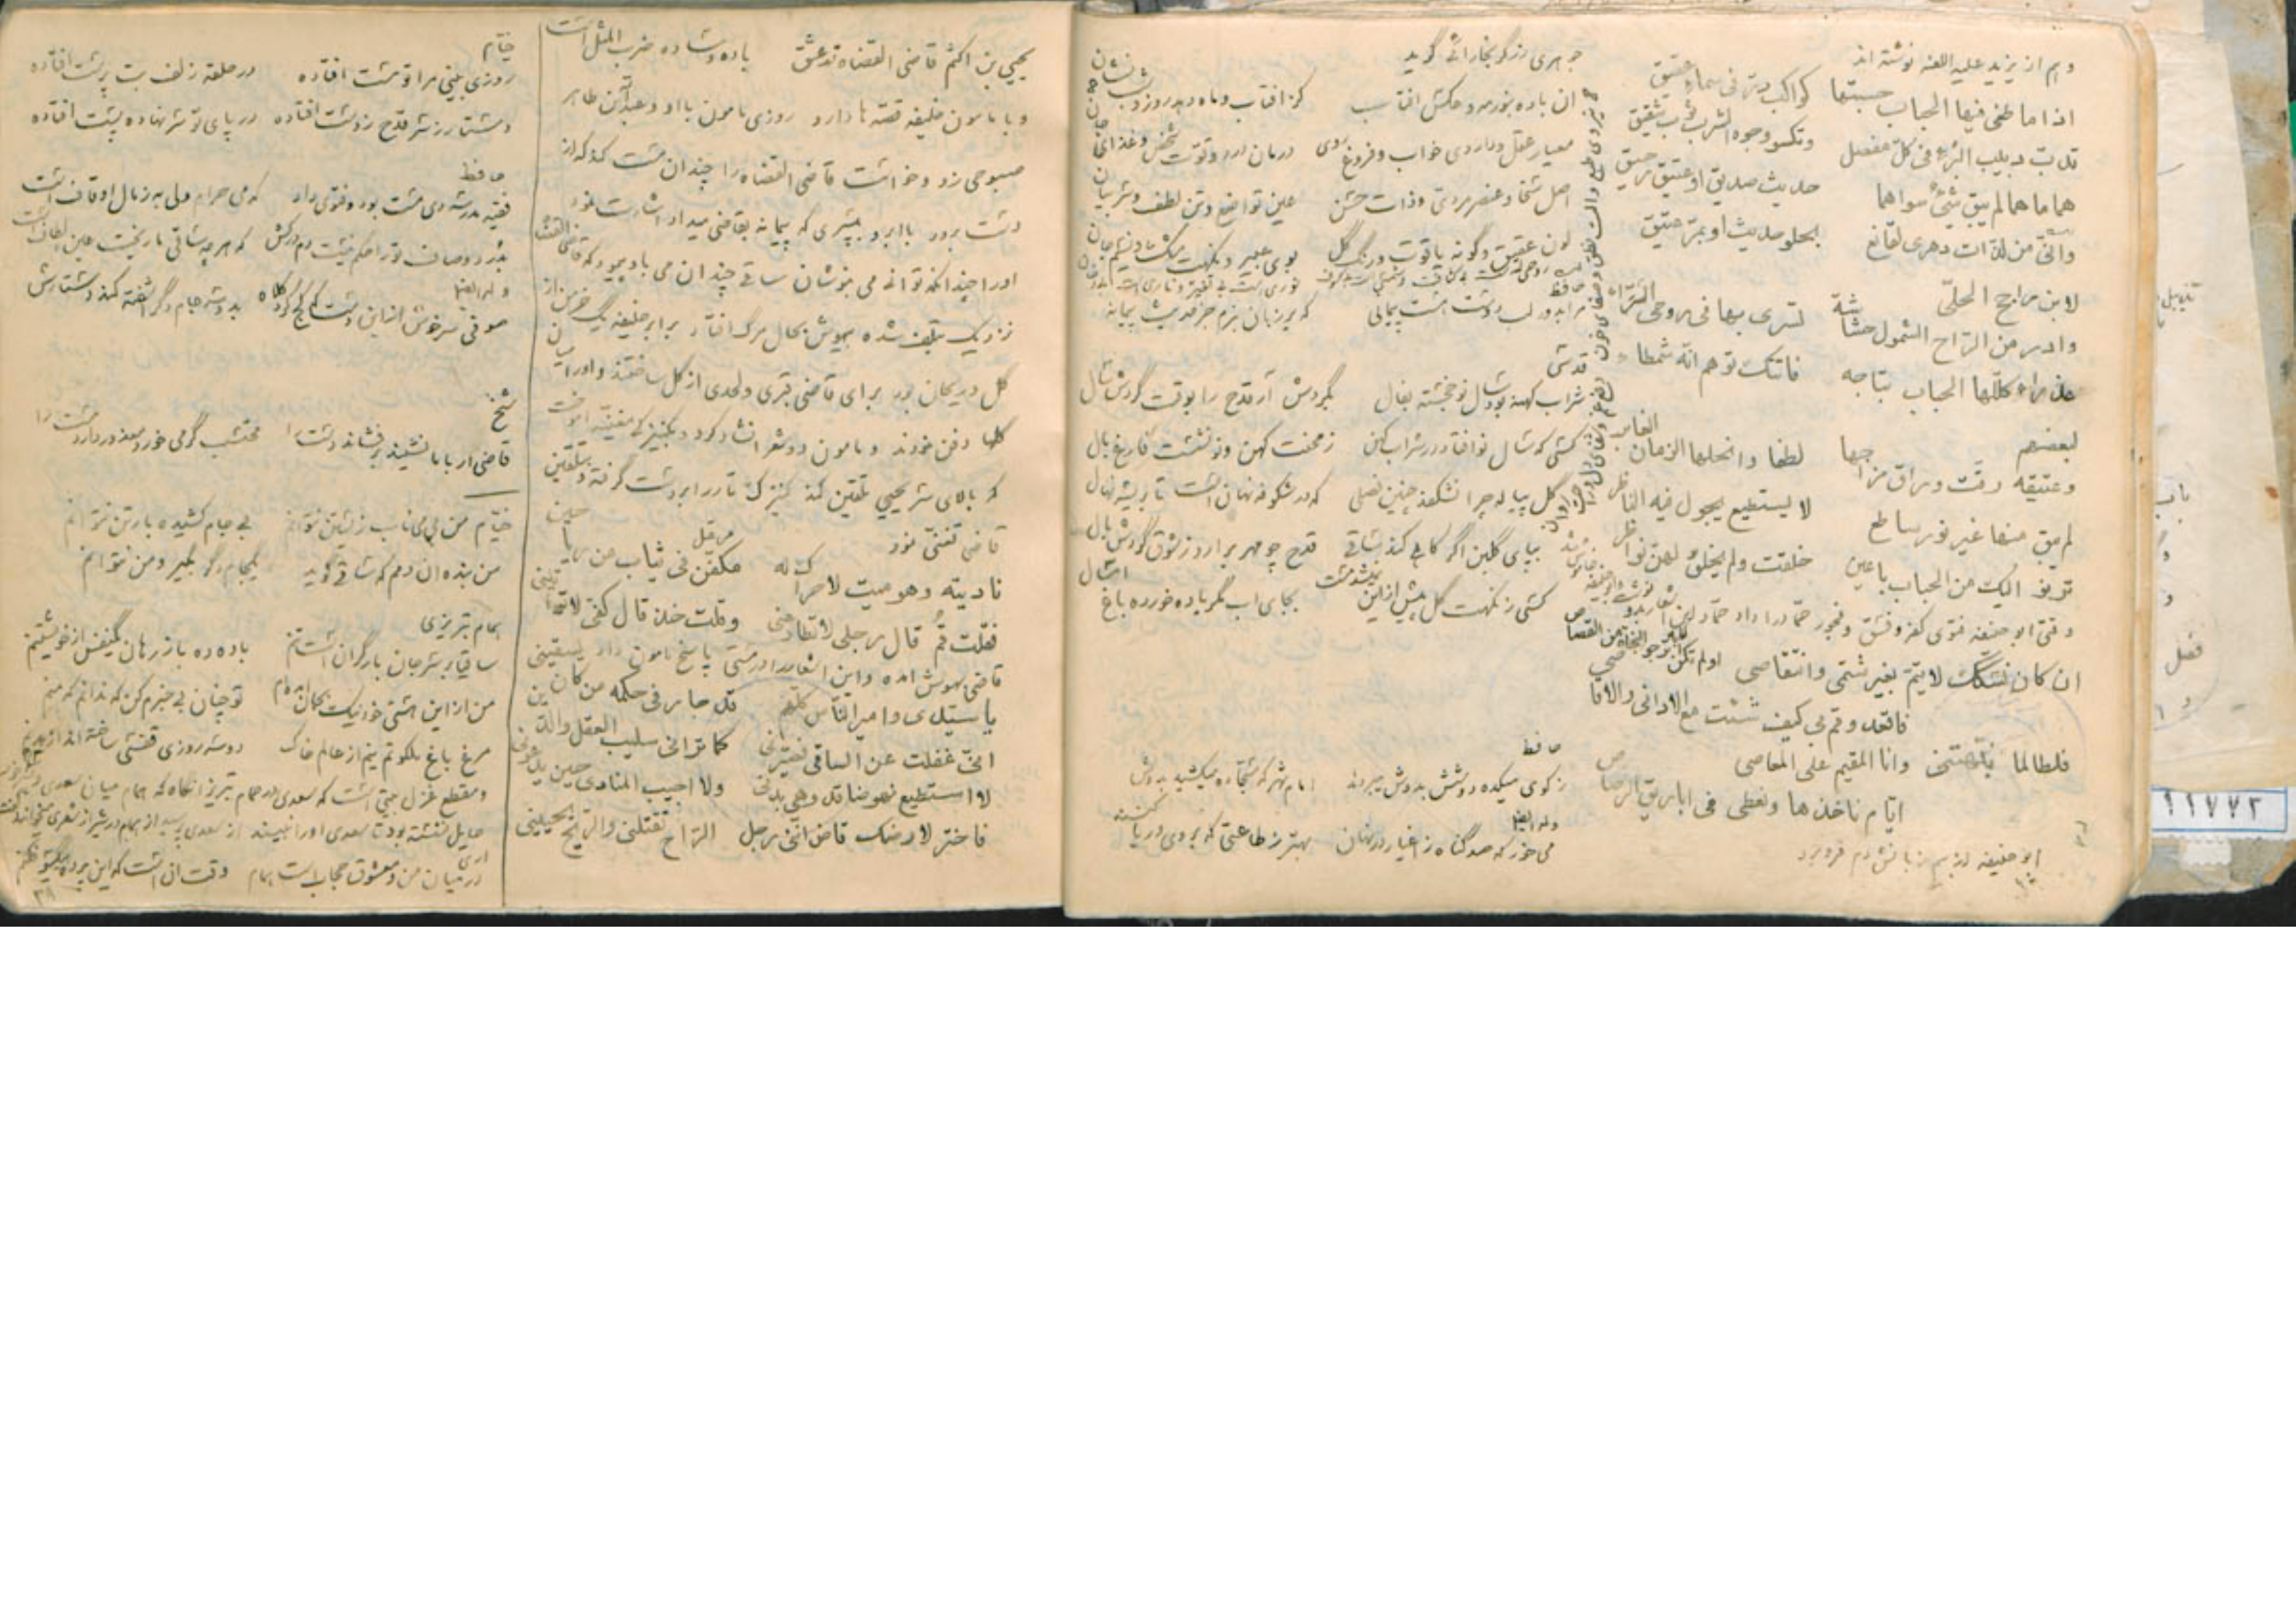 وهم از یزید علیه اللعنه نوشته اند
اذا ما طفی فیها الحباب حسبتها کواکب درّ فی سماء عقیق
تدبّ دبیب البُرء فی کلّ مفصل وتکسو وجوه الشرب ثوب شقیق
هما ما هما لم یبق شیٌ سواهما حدیث صدیق او عتیق رحیق
وانّی من لذّات دهری لقانع بحلو حدیث او بمرّ عتیق
لابن راجح الحلّی
وادر من الراح الشمول حشاشة تسری بها فی روحی السّرّاء
عذراء کلّلها الحباب بتاجه فاتتک توهم انّه شمطاء
لبعضهم
وعتیقه رقّت وراق مزاجها لطفا وانحلها الزمان الغابر
لم یبق منها غیر نور ساطع لا یستطیع یجول فیه الناظر
ترنو الیک من الحباب باعین خلقت ولم یخلق لهن نواظر
وقتی ابو حنیفه فتوی کفر وفسق وفجور حمّاد را داد حمّاد این اشعار بدو نوشت
ان کان نسکک لا یتمّ بغیر شتمی وانتقاصی
فاقعد وقم بی کیف شئت مع الادانی والاقاصی
فلطالما وانا المقیم علی المعاصی
ایّام ناخذها ونعطی فی اباریق الرصاص
ابو حنیفه از بیم زبانش دم فرو برد
جوهری زرگر بخارائی گوید
ان باده
معیار عقل وداروی خواب وفروغ روی درمان درد وقوّت شخص وغذای جان
اصل سخا وعنصر مردی وذات حسن عین تواضع وتن لطف
لون عقیق وگونه یاقوت ورنگ گل بوی عبیر ونکهت مشک ونسیم بان
حافظ
که بر زبان نبرم جز حدیث پیمانه
قدسی
شراب کهنه بود سال نو خجسته بفال بگردش آر قدح را بوقت گردش سال
کسی که سال نو افتاد در شراب کهن ز محنت کهن ونو نشست فارغ بال
گل پیاله چرا نشکفد چنین فصلی که در شکوفه نهان است تا بریشه نهال
بپای گلبن اگر کاهلی کند ساقی قدح چو مهر برارد ز شوق گردش بال
کسی ز نکهت گل پیش از این نمیشد مست بجای اب مگر باده خورده باغ امسال
حافظ
ز کوی میکده دوشش بدوش میبردند امام شهر که سجّاده میکشید بدوش
وله ایضا
می خور که صد گناه ز اغیار در نهان بهتر ز طاعتی که بروی وریا کنند
یحیی بن اکثم قاضی القضاه در عشق باده وساده ضرب المثل است
وبا مامون خلیفه قصّه ها دارد روزی مامون با او وعبدالله بن طاهر
صبوحی زد وخواست قاضی القضاه را چندان مست کند که از
دست برود با ابرو بپسری که پیمانه بقاضی میداد اشارت نمود
اورا چندانکه توانی می بنوشان ساقی چندان می باو پیمود که قاضی القضاه
نزدیک بتلف شده بیهوش بحال مرگ افتاد برابر خلیفه یک خرمن از
گل وریحان بود برای قاضی قبری ولحدی از گل ساختند واورا میان
گلها دفن نمودند ومامون دو شعر انشاد کرد وبکنیزکی مغنّیه اموخت
که بالای سر یحیی تلقین کند کنیزک تار را بر دست گرفته وبتلقین
قاضی تغنّی نمود
نادیته وهو میت لا حراک له مکفّن فی ثیاب من ریاحین
فقلت قُم قال رجلی لا تطاوعنی وقلت خذ قال کفّی لا تواتینی
قاضی بهوش امده واین اشعار در مستی پاسخ مامون داد
یا سیّدی وامیر النّاس کلّهم قد جار فی حکمه من کان یسقینی
انّی غفلت عن الساقی فصیّرنی کما ترانی سلیب العقل والدّین
لا استطیع نهوضا قد وهی بدنی ولا اجیب المنادی حین یدعونی
فاختر لارضک قاض انّنی رجل الرّاح تقتلنی والرّاح یحیینی
خیّام
روزی بینی مرا تو مست افتاده در حلقه زلف بت پرست افتاده
دستار ز سر قدح ز دست افتاده در پای تو سر نهاده پست افتاده
حافظ
فقیه مدرسه دی مست بود وفتوی داد که می حرام ولی به ز مال اوقاف است
بدُرد وصاف تو را حکم نیست دم درکش که هر چه ساقی ما ریخت عین الطاف است
وله ایضا
صوفی سرخوش از این دست که کج کرد کلاه بدو سه جام دگر اشفته کند دستارش
شیخ
قاضی ار با ما نشیند برفشاند دست را محتسب گر می خورد معذور دارد مست را
خیّام
من بی می ناب زیستن نتوانم بی جام کشیده بار تن نتوانم
من بنده ان دمم که ساقی گوید یکجام دگر بگیر ومن نتوانم
همام تبریزی
ساقیا بر سر جان بار گران است تنم باده ده باز رهان یکنفس از خویشتنم
من از این هستی خود نیک بجان امده ام تو چنان بی خبرم کن که ندانم که منم
مرغ باغ ملکوتم نیم از عالم خاک دو سه روزی قفسی ساخته اند از بدنم
ومقطع غزل بیتی است که سعدی در حمام تبریز انگاه که همام میان سعدی
حایل نشسته بود تا سعدی اورا نبیند از سعدی پرسید از همام در شیراز شعری میخوانند گفت اری
در میان من ومعشوق حجاب است همام وقت ان است که این پرده بیکسو فکنم
۳۸
۱۱۷۷۲